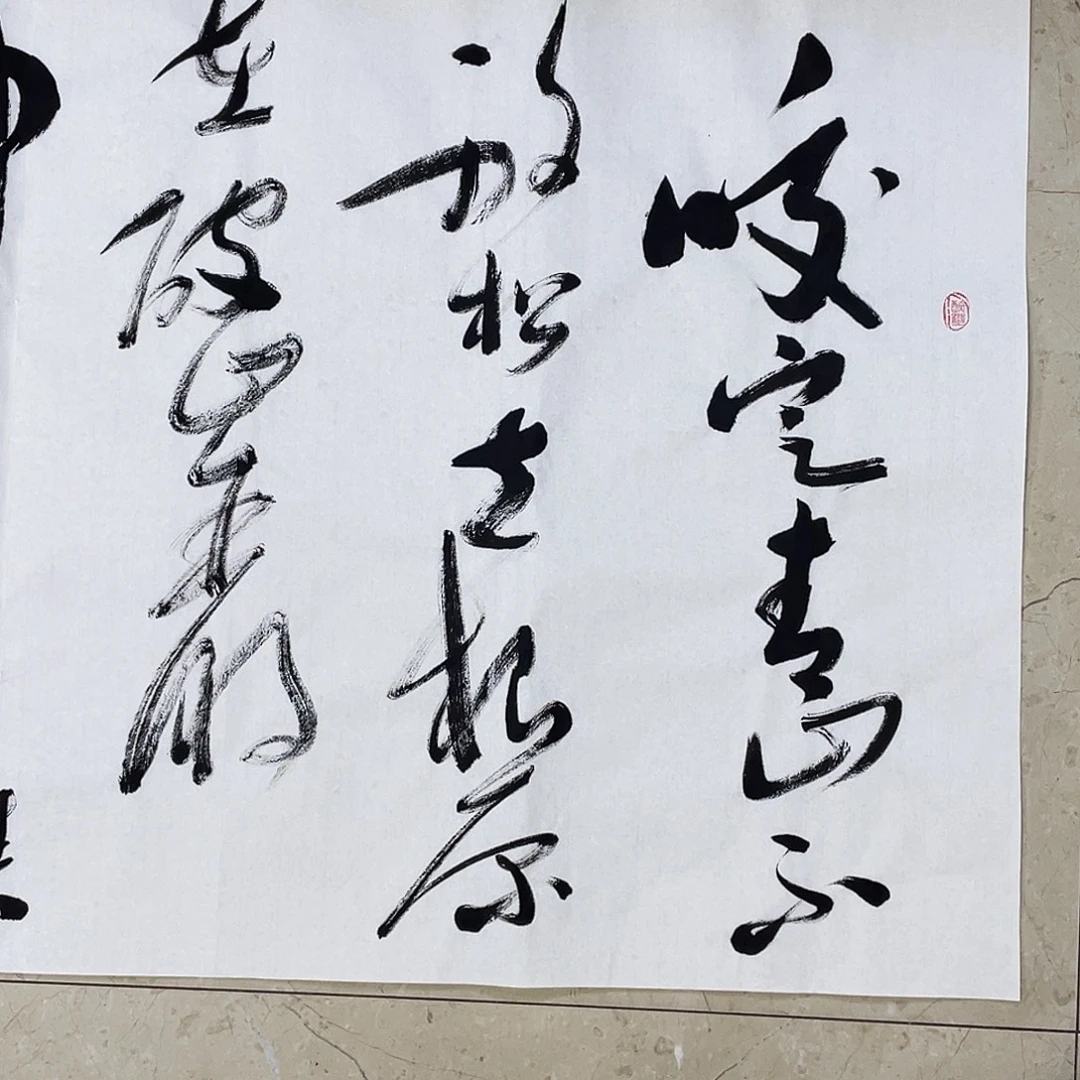 咬定青山不
放松立根原
在破岩中